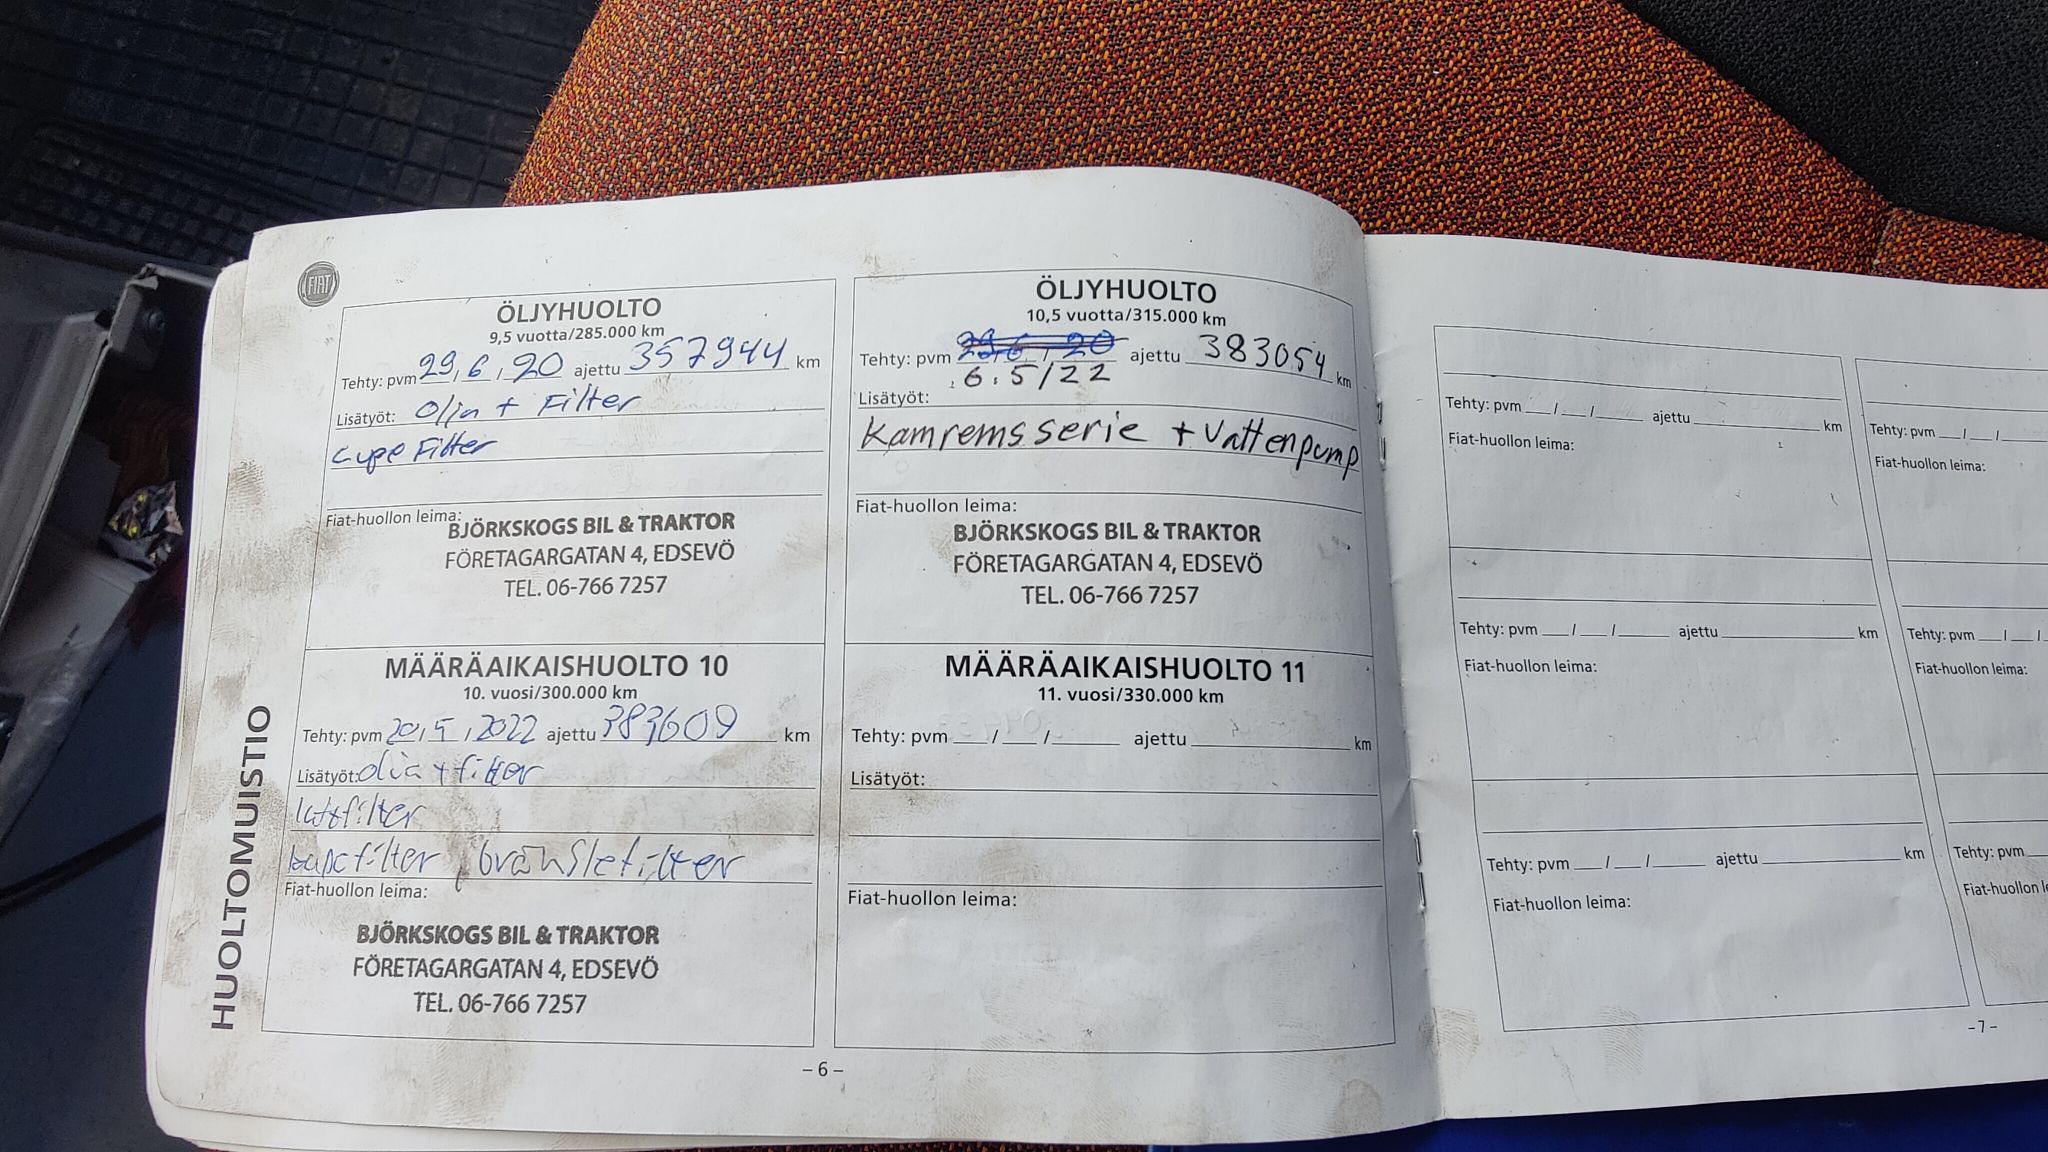 FIAT
HUOLTOMUISTIO
ÖLJYHUOLTO
9,5 vuotta/285.000 km
Tehty: pvm 29,6,20 ajettu 357944 km
Lisätyöt: Olja + Filter
Filter
Fiat-huollon leima:
BJÖRKSKOGS BIL & TRAKTOR
FÖRETAGARGATAN 4, EDSEVÖ
TEL. 06-766 7257
MÄÄRÄAIKAISHUOLTO 10
10. vuosi/300.000 km
Tehty: pvm 20,5,2022 ajettu 383609 km
Lisätyöt: olja + filter
luftfilter
kupefilter, bränslefilter
Fiat-huollon leima:
BJÖRKSKOGS BIL & TRAKTOR
FÖRETAGARGATAN 4, EDSEVÖ
TEL. 06-766 7257
ÖLJYHUOLTO
10,5 vuotta/315.000 km
Tehty: pvm 29,6,20 ajettu 383054 km
6.5/22
Lisätyöt:
Kamremsserie + Vattenpump
Fiat-huollon leima:
BJÖRKSKOGS BIL & TRAKTOR
FÖRETAGARGATAN 4, EDSEVÖ
TEL. 06-766 7257
MÄÄRÄAIKAISHUOLTO 11
11. vuosi/330.000 km
Tehty: pvm / / ajettu km
Lisätyöt:
Fiat-huollon leima:
–6–
Tehty: pvm / / ajettu km
Fiat-huollon leima:
Tehty: pvm / / ajettu km
Fiat-huollon leima:
Tehty: pvm / / ajettu km
Fiat-huollon leima:
Tehty: pvm / /
Fiat-huollon leima:
Tehty: pvm / /
Fiat-huollon leima:
Tehty: pvm
Fiat-huollon
–7–